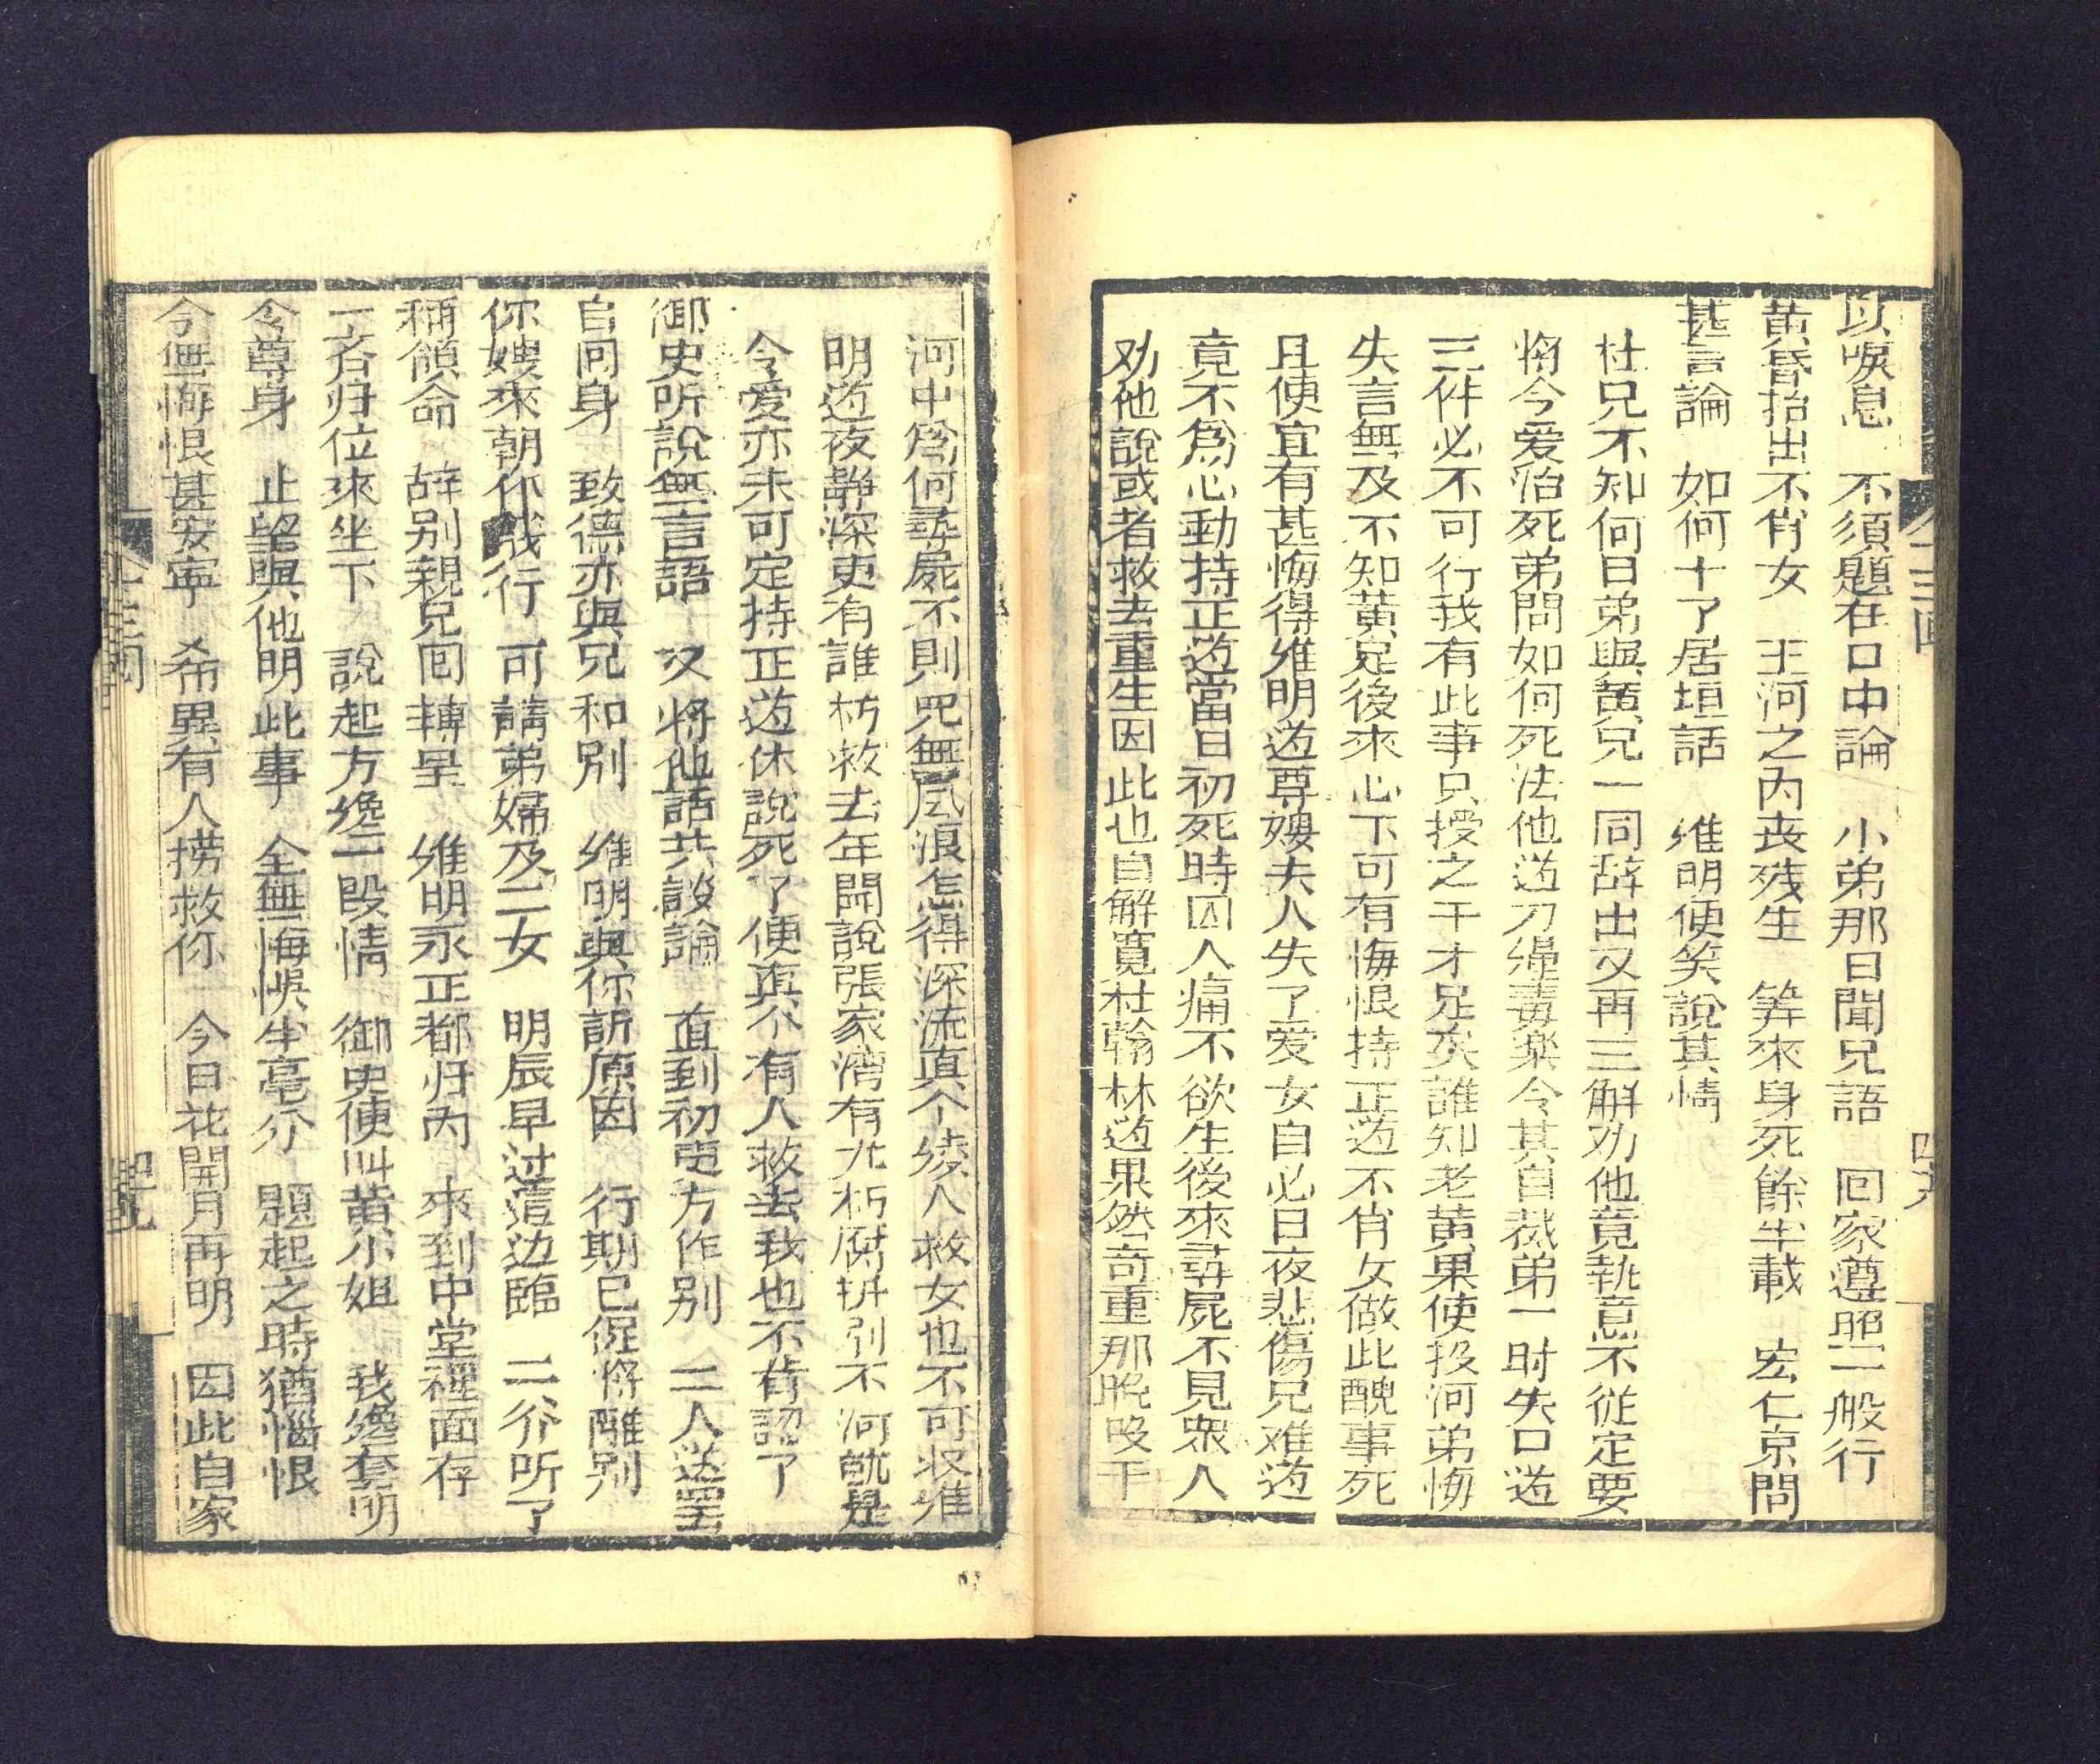 以喉息　不須題在口中論　小弟那日聞兄語　回家遵照一般行
黃昏抬出不肖女　王河之內丧残生　筭來身死餘半載　宏仁京問
甚言論　如何十了居垣話　维明便笑說其情
杜兄不知何日弟與黄兄一同辞出又再三解劝他竟執意不從定要
将令爱治死弟問如何死法他道刀繩毒藥令其自裁弟一时失口道
三件必不可行我有此事只授之干才足矣誰知老黄果使投河弟悔
失言無及不知黄兄後來心下可有悔恨持正道不肖女做此醜事死
且便宜有甚悔得维明道尊嫂夫人失了爱女自必日夜悲傷兄难道
竟不為心動持正道當日初死時因人痛不欲生後來尋屍不見衆人
劝他說或者救去重生因此也自解寬杜翰林道果然奇重那晚吸干
河中為何尋屍不則况無風浪怎得深流真个綾人救女也不可収维
明道夜静深更有誰　救去年聞說張家湾有　朽腐　不河就是
令爱亦未可定持正道休說死了便真个有人救去我也不肯認了
御史听說無言語　又将他話共談論　直到初更方作别　二人送罢
自回身　致德亦與兄和别　维明與你訴原因　行期已促将離别
你嫂來朝代我行　可請弟婦及二女　明辰早过這边臨　二爷听了
稱領命　辞别親兄回轉呈　维明永正都归內　來到中堂裡面存
一齐归位來坐下　說起方纔一段情　御史便叫黄小姐　我纔套問
令尊身　止望與他明此事　全無悔悮半毫分　題起之時猶惱恨
令無悔恨甚安寕　希異有人捞救你　今日花開月再明　因此自家